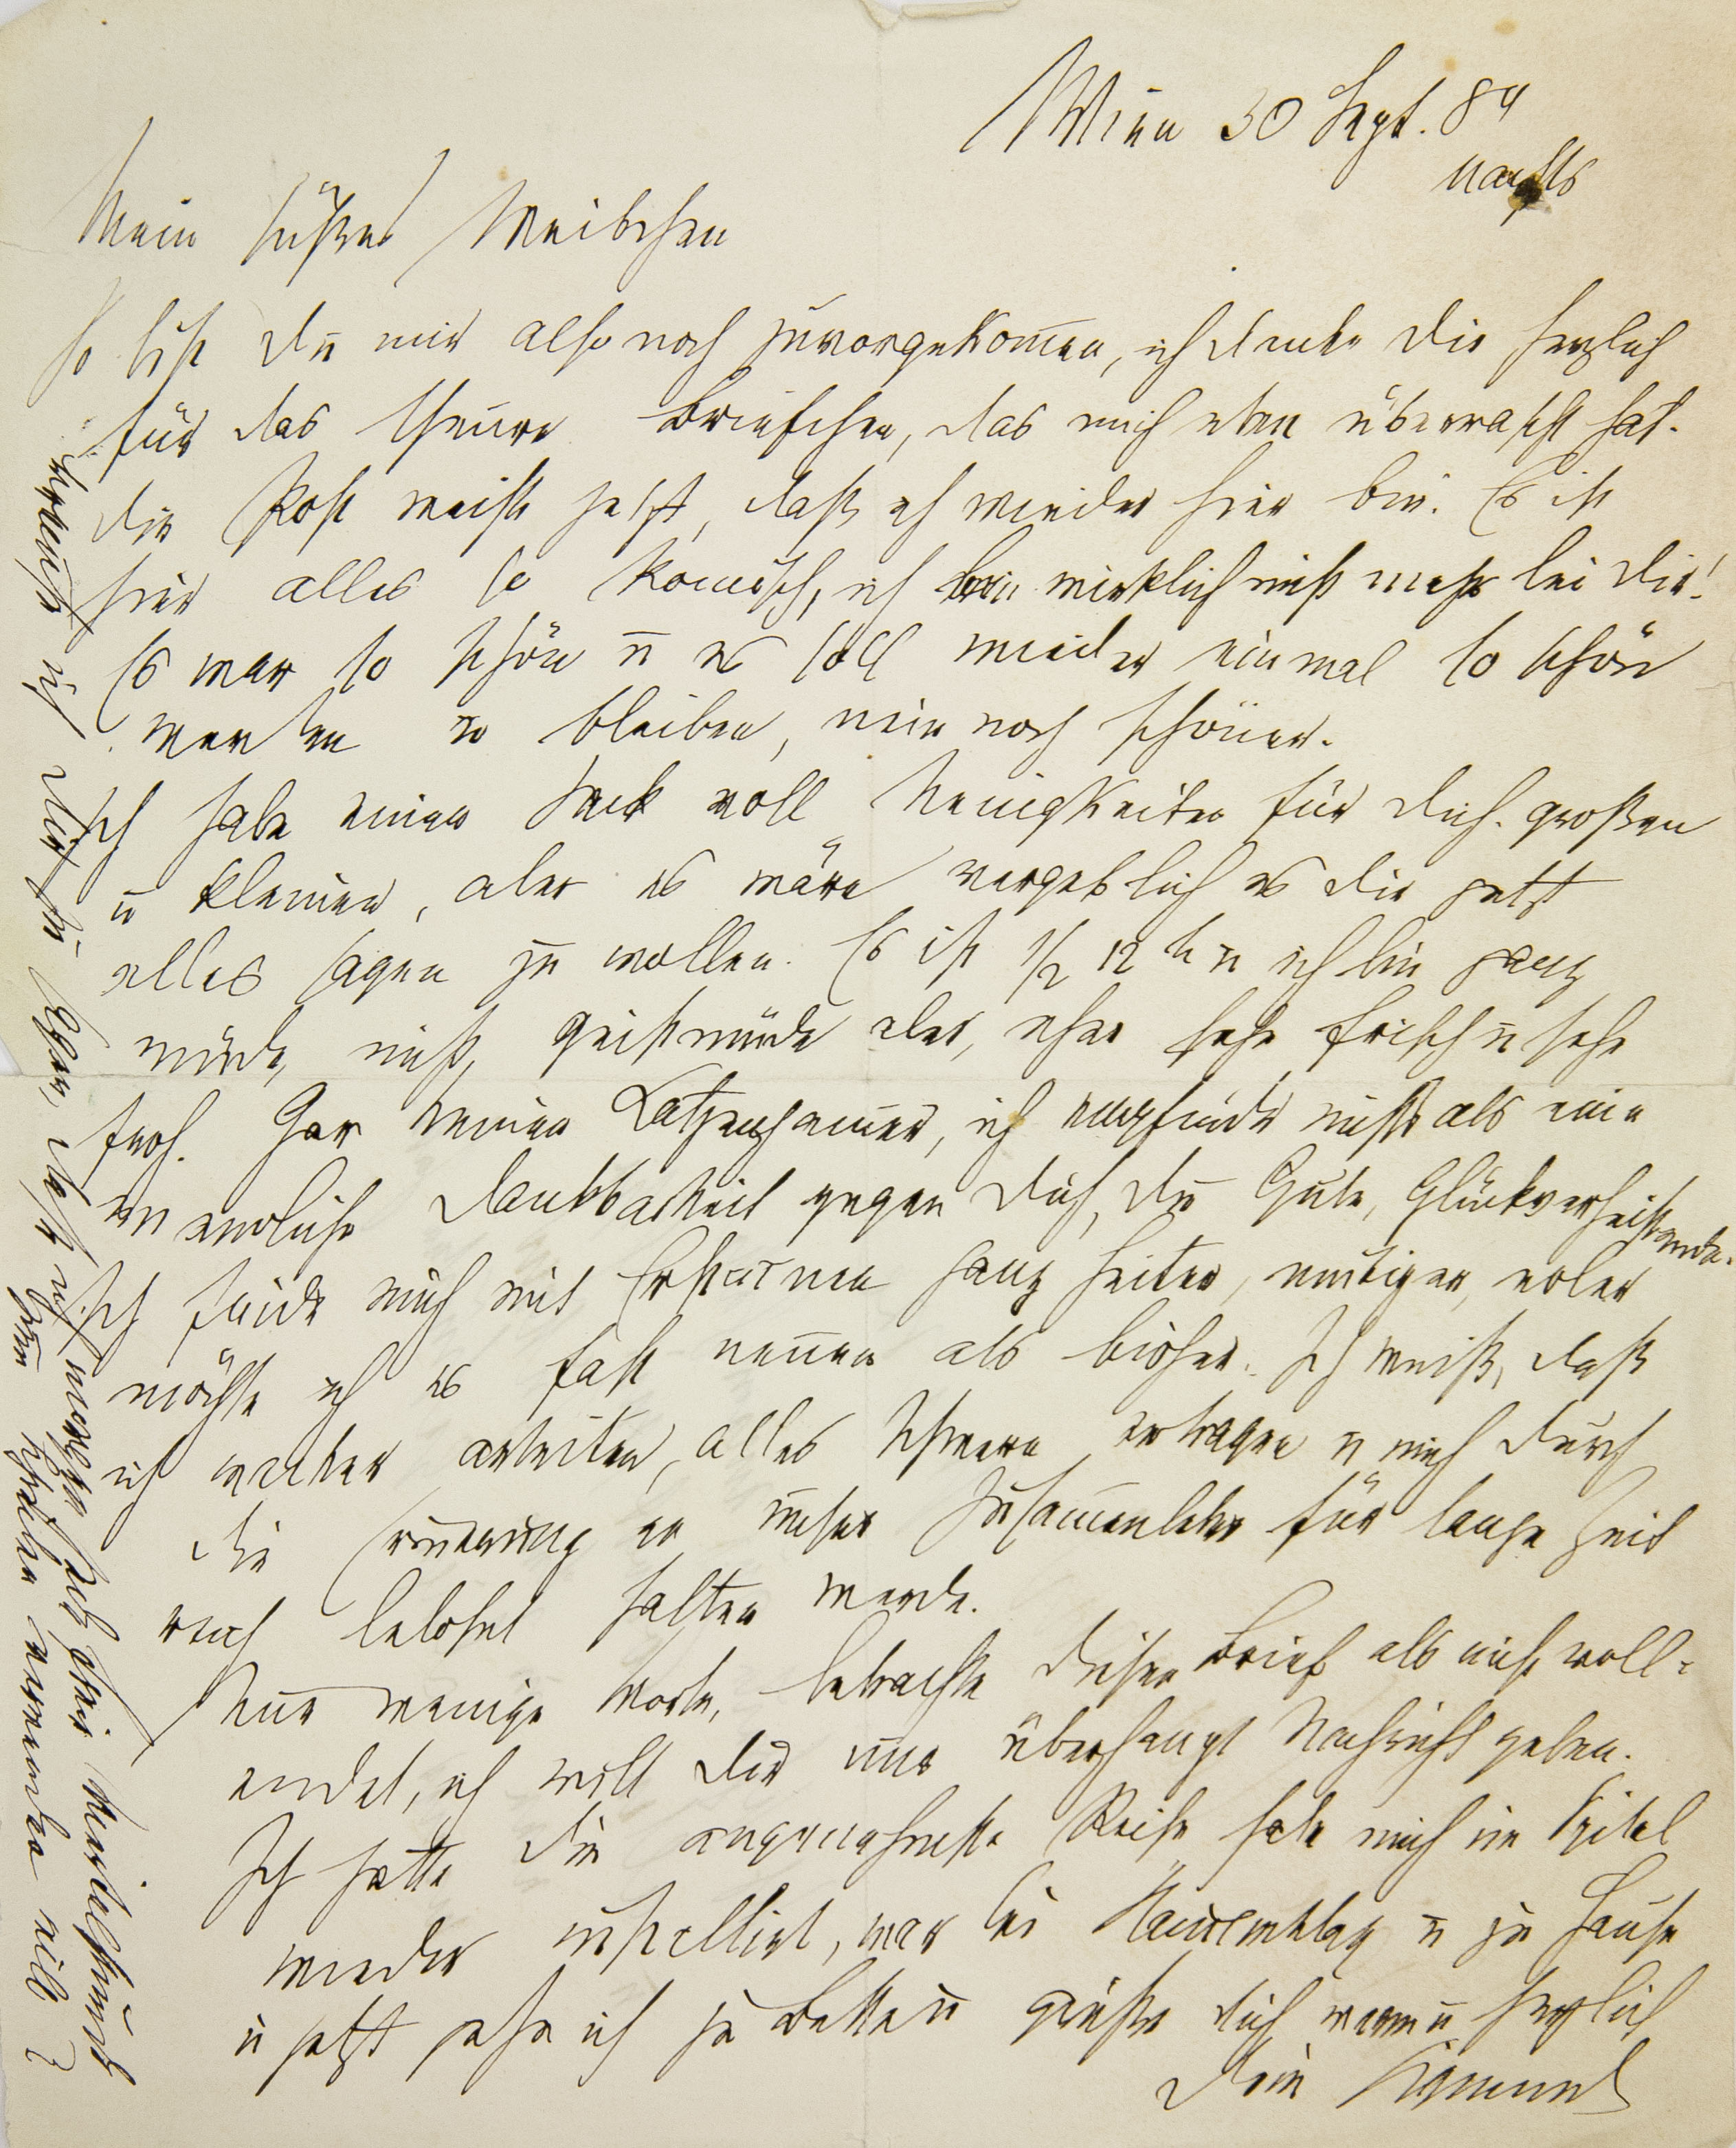 Wien 30 Sept. 84
Nachts
Mein süßes Weibchen
So bist Du mir also noch zuvorgekom̅en, ich danke Dir herzlich
für das theure Briefchen, das mich eben überrascht hat.
Die Post weiß jetzt, daß ich wieder hier bin. Es ist
hier alles so komisch, ich bin wirklich nicht mehr bei Dir!
Es war so schön u̅ es soll wieder einmal so schön
werden so bleiben, nein noch schöner.
Ich habe einen Sack voll Neuigkeiten für Dich. großen
u̅ kleinen, aber es wäre vergeblich es Dir jetzt
alles sagen zu wollen. Es ist 1/2 12 h u̅ ich bin ganz
müde, nicht geistmüde aber, eher sehr frisch u̅ sehr
froh. Gar keinen Katzenjam̅er, ich empfinde nichts als eine
unendliche Dankbarkeit gegen Dich, Du Gute, Glückverheißende.
Ich finde mich mit Erstaunen ganz heiter, mutiger, edler
möchte ich es fast nen̅en als bisher. Ich weiß, daß
ich wacker arbeiten, alles Schwere ertragen u̅ mich durch
die Erin̅erung an unser Zusam̅enleben für lange Zeit
reich belohnt halten werde.
Nur wenige Worte, betrachte diesen Brief als nicht voll-
endet, ich will Dir nur überhaupt Nachricht geben.
Ich hatte die angenehmste Reise habe mich im Spital
wieder installirt, war bei Ham̅erschlag u̅ zu Hause
u̅ jetzt gehe ich zu Bette u̅ grüße Dich warm u̅ herzlich
Dein Sigmund
Brauche ich Dir zu sagen, daß ich morgen Zeit Dein
gern Schreiben verwenden will?